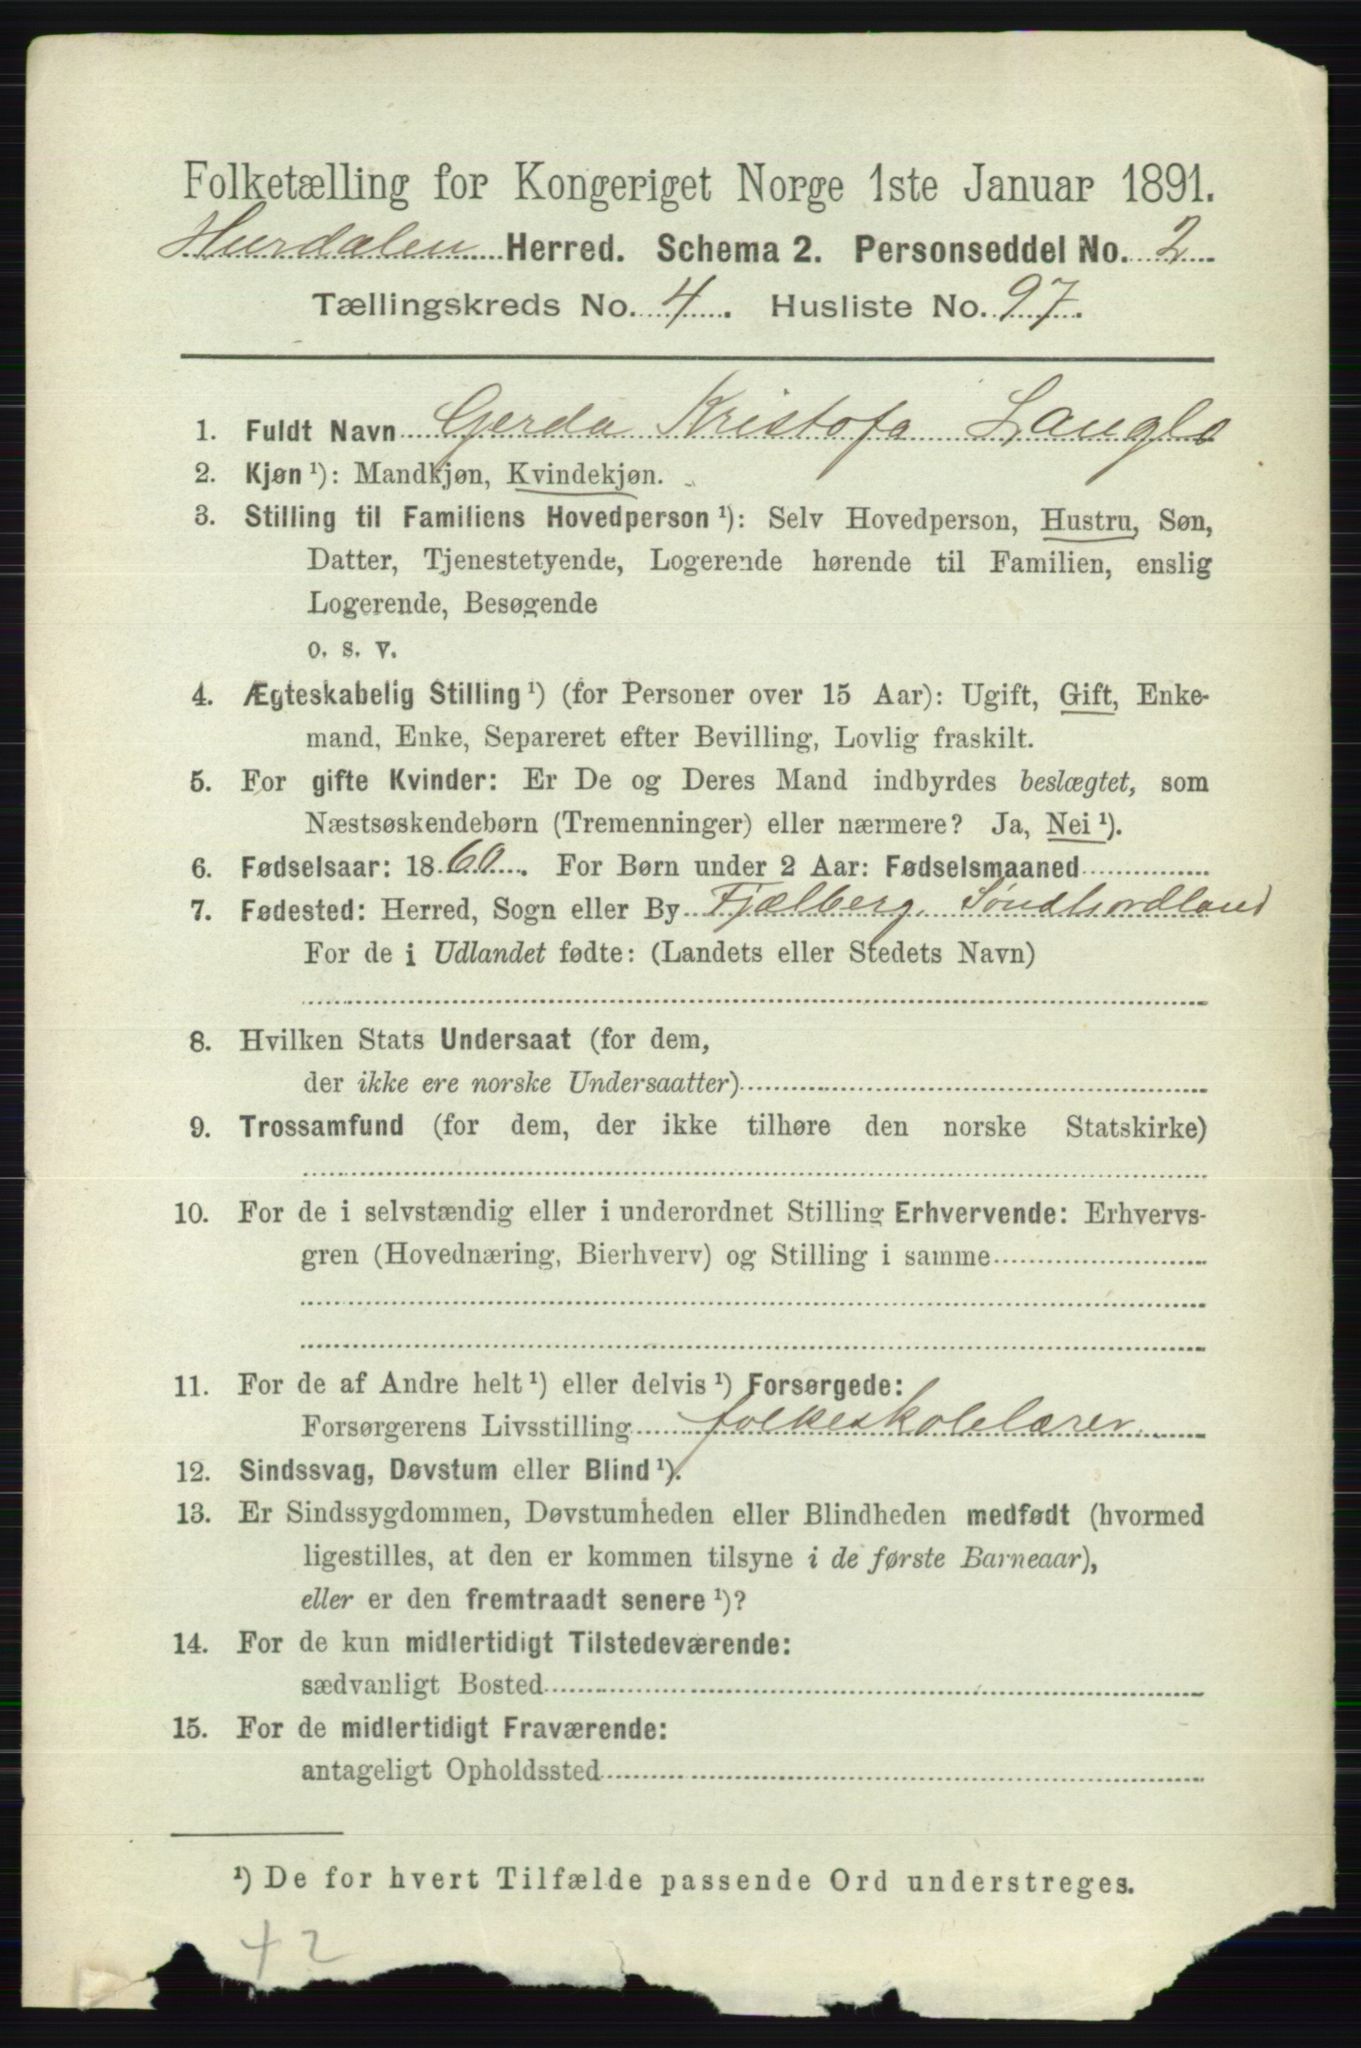 Folketælling for Kongeriget Norge 1ste Januar 1891.
Hurdalen Herred. Schema 2. Personseddel No. 2
Tællingskreds No. 4. Husliste No. 97.
1. Fuldt Navn Gerda Kristofa Langlo
2. Kjøn ¹): Mandkjøn, Kvindekjøn.
3. Stilling til Familiens Hovedperson ¹): Selv Hovedperson, Hustru, Søn,
Datter, Tjenestetyende, Logerende hørende til Familien, enslig
Logerende, Besøgende
o. s. v.
4. Ægteskabelig Stilling ¹) (for Personer over 15 Aar): Ugift, Gift, Enke-
mand, Enke, Separeret efter Bevilling, Lovlig fraskilt.
5. For gifte Kvinder: Er De og Deres Mand indbyrdes beslægtet, som
Næstsøskendebørn (Tremenninger) eller nærmere? Ja, Nei ¹).
6. Fødselsaar: 1860. For Børn under 2 Aar: Fødselsmaaned
7. Fødested: Herred, Sogn eller By Fjælberg, Søndhordland
For de i Udlandet fødte: (Landets eller Stedets Navn)
8. Hvilken Stats Undersaat (for dem,
der ikke ere norske Undersaatter)
9. Trossamfund (for dem, der ikke tilhøre den norske Statskirke)
10. For de i selvstændig eller i underordnet Stilling Erhvervende: Erhvervs-
gren (Hovednæring, Bierhverv) og Stilling i samme
11. For de af Andre helt ¹) eller delvis ¹) Forsørgede:
Forsørgerens Livsstilling folkeskolelærer
12. Sindssvag, Døvstum eller Blind ¹).
13. Er Sindssygdommen, Døvstumheden eller Blindheden medfødt (hvormed
ligestilles, at den er kommen tilsyne i de første Barneaar),
eller er den fremtraadt senere ¹)?
14. For de kun midlertidigt Tilstedeværende:
sædvanligt Bosted
15. For de midlertidigt Fraværende:
antageligt Opholdssted
¹) De for hvert Tilfælde passende Ord understreges.
+2